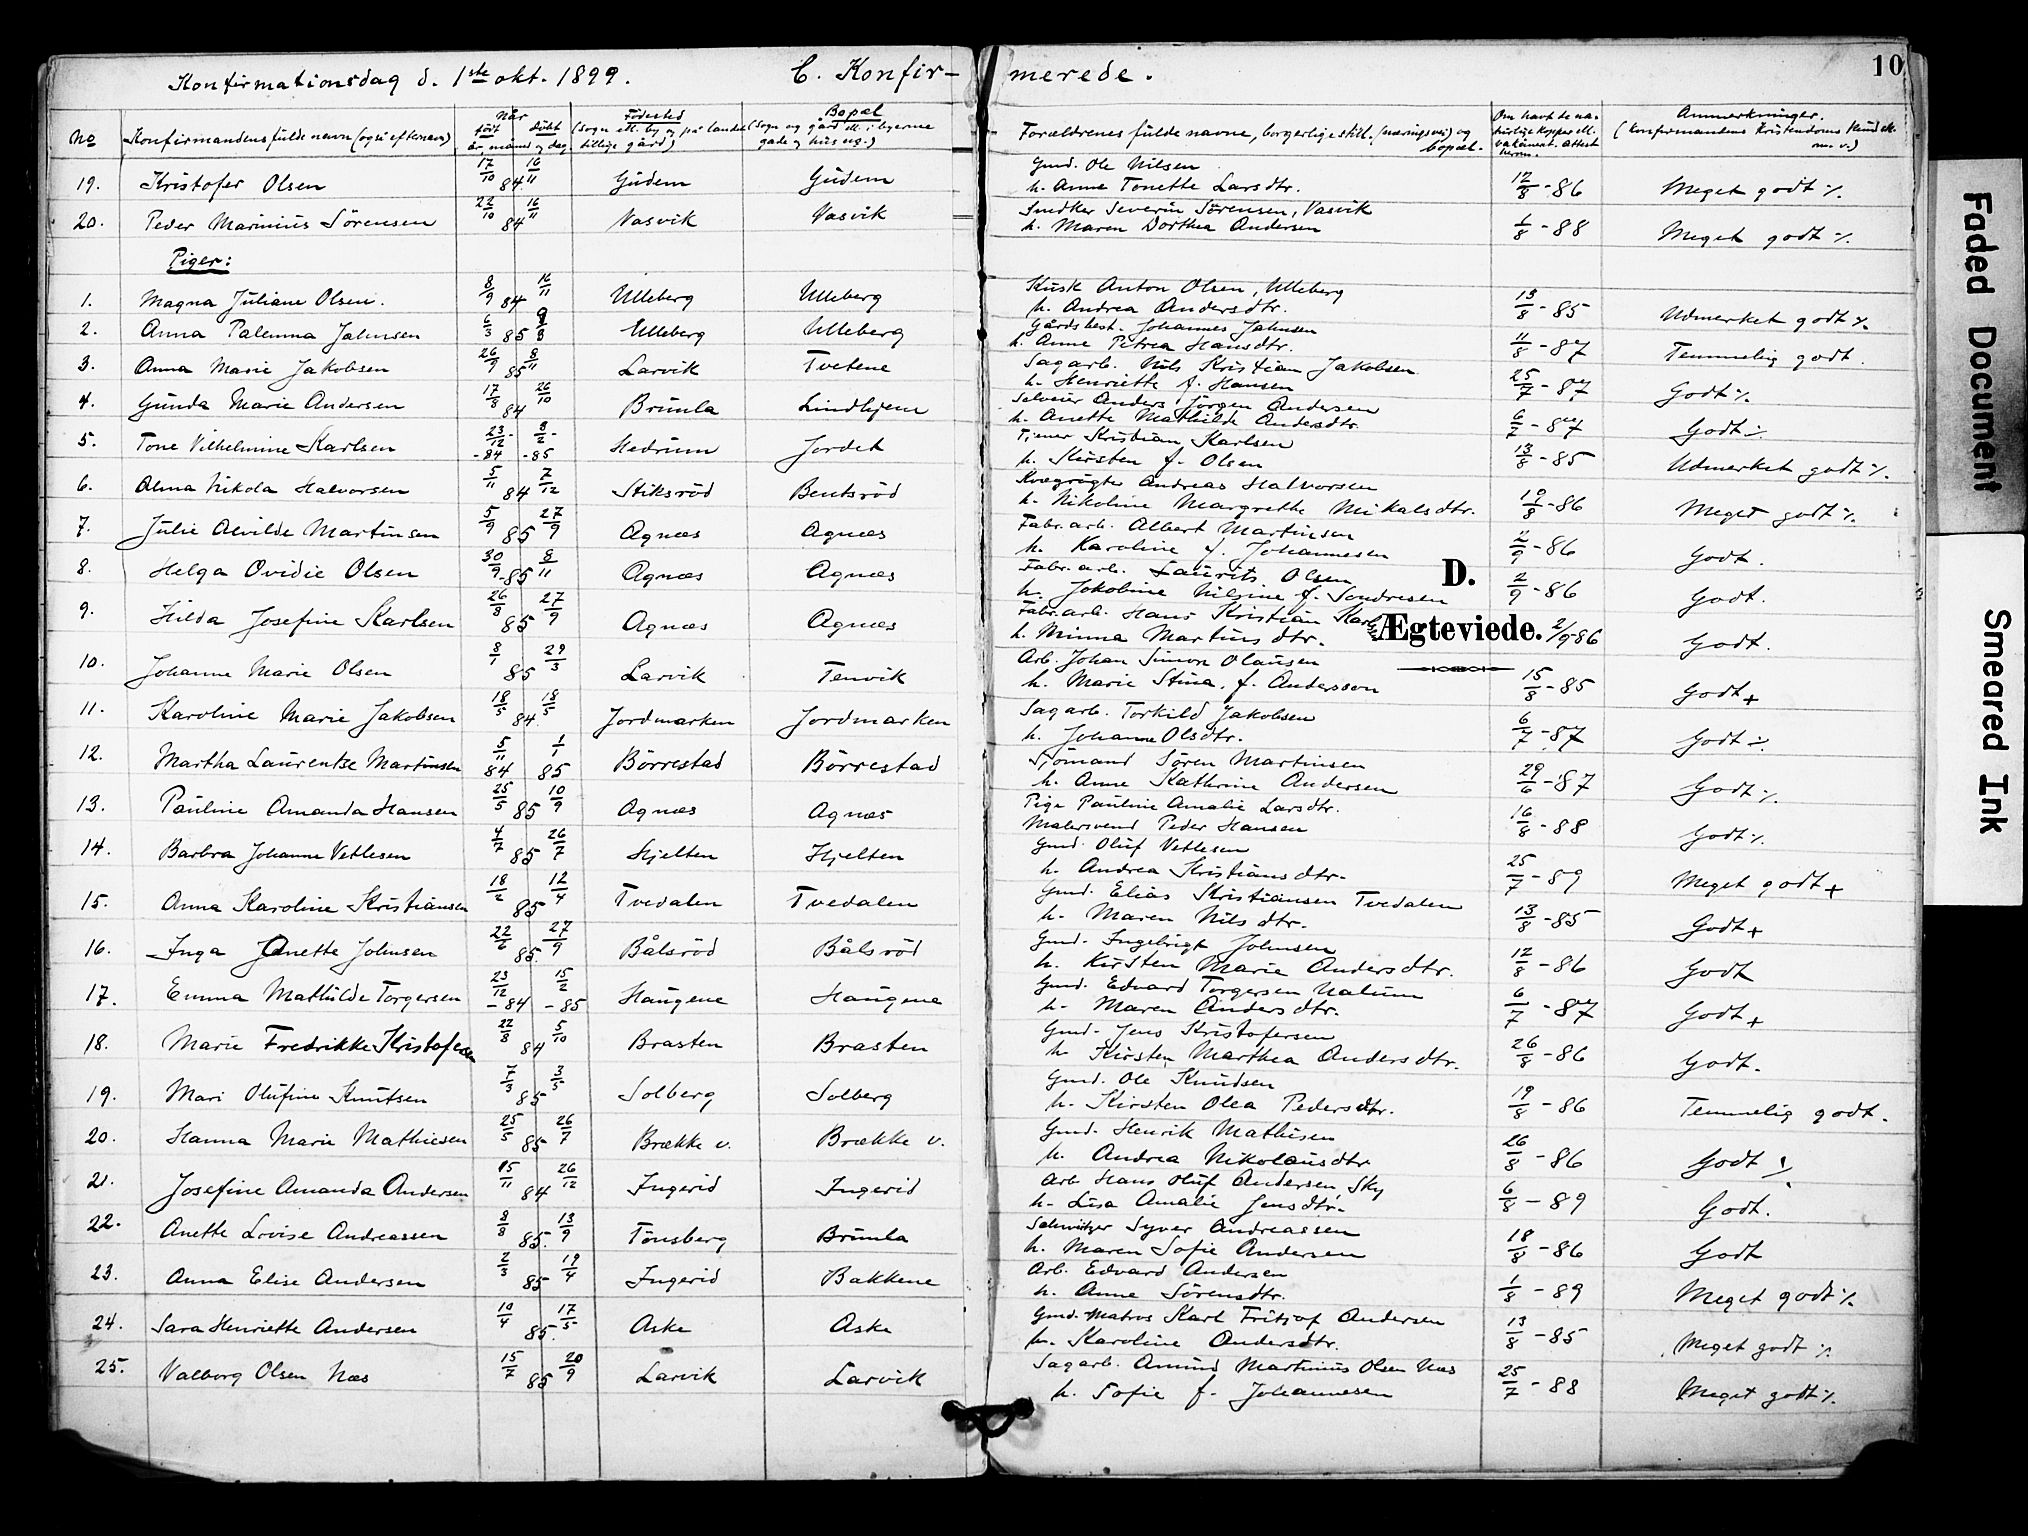 Konfirmationsdag d. 1ste okt. 1899. C. Konfir- merede. 10
No Konfirmandens fulde navn (også efternavn) Når født døbt år, måned og dag Fødested (sogn ell. by, og på landet tillige gård) Bopæl (sogn og gård ell. i byerne gade og hus no.) Forældrenes fulde navne, borgerlige still. (næringsvei) og bopæl. Om havt de naturlige kopper ell. vakcineret. Attest herom. Anmerkninger. (konfirmandens Kristendoms kundsk. m. v.)
19. Kristofer Olsen 17/10 84 16/11 Gudem Gudem Gmd. Ole Nilsen
h. Anne Tonette Larsdtr. 12/8-86 Meget godt %
20. Peder Marinius Sörensen 22/10 84 16/11 Vasvik Vasvik Snedker Severin Sörensen, Vasvik
h. Maren Dorthea Andersen 6/8-88 Meget godt %
Piger:
1. Magna Juliane Olsen. 8/9 84 16/11 Ulleberg Ulleberg Kusk Anton Olsen, Ulleberg
h. Andrea Andersdtr. 13/8-85 Udmerket godt %
2. Anna Palemna Jahnsen 6/3 85 Ulleberg Ulleberg Gårdsbest. Johannes Jahnsen
h. Anne Petrea Hansdtr. 11/8-87 Temmelig godt.
3. Anna Marie Jakobsen 26/9 85 8/11 Larvik Tvetene Sagarb. Nils Kristian Jakobsen
h. Henriette f. Hansen 25/7-87 Godt %
4. Gunda Marie Andersen 17/8 84 26/10 Brunla Lindhjem Selveier Anders Jörgen Andersen
h. Anette Mathilde Andersdtr. 6/7-87 Godt %
5. Tone Vilhelmine Karlsen 23/12-84 8/2-85 Hedrum Jordet Kristian Karlsen
h. Kirsten f. Olsen 13/8-85 Udmerket godt %
6. Alma Nikola Halvorsen 5/11 84 7/12 Stiksröd Bentsröd Kvægrögter Andreas Halvorsen
h. Nikoline Margrethe Mikalsdtr. 19/8-86 Meget godt %
7. Julie Alvilde Martinsen 5/9 85 27/9 Agnæs Agnæs Fabr. arb. Albert Martinsen
h. Karoline f. Johannesen 2/9-86 Godt.
8. Helga Ovidie Olsen 30/9 85 8/11 Agnæs Agnæs Fabr. arb. Laurits Olsen
h. Jakobine Nilsine f. Sondresen 2/9-86 Godt.
D.
Ægteviede.
9. Hilda Josefine Karlsen 26/8 85 27/9 Agnæs Agnæs Fabr. arb. Hans Kristian Karlsen
h. Minna Martinsdtr. 2/9-86 Godt.
10. Johanne Marie Olsen 8/1 85 29/3 Larvik Tenvik Arb. Johan Simon Olausen
h. Marie Stina, f. Andersson 15/8-85 Godt +
11. Karoline Marie Jakobsen 18/5 84 18/5 Jordmarken Jordmarken Sagarb. Torkild Jakobsen
h. Johanne Olsdtr. 6/7-87 Godt %
12. Martha Laurentse Martinsen 5/11 84 1/1 85 Börrestad Börrestad Sjömand Sören Martinsen
h. Anne Kathrine Andersen 29/6-87 Godt %
13. Pauline Amanda Hansen 25/5 85 10/9 Agnæs Agnæs Pige Pauline Amalie Larsdtr.
Malersvend Peder Hansen 16/8-88 Godt %
14. Barbra Johanne Vetlesen 4/7 85 26/7 Hjelten Hjelten Gmd. Oluf Vetlesen
h. Andrea Kristiansdtr. 25/7-89 Meget godt +
15. Anna Karoline Kristiansen 18/2 85 12/4 Tvedalen Tvedalen Gmd. Elias Kristiansen Tvedalen
h. Maren Nilsdtr. 13/8-85 Godt +
16. Inga Janette Johnsen 22/6 85. 27/9 Bålsröd Bålsröd Gmd. Ingebrigt Johnsen
h. Kirsten Marie Andersdtr. 12/8-86 Godt
17. Emma Mathilde Torgersen 23/12-84 15/2-85 Haugene Haugene Gmd. Edvard Torgersen Nalum
h. Maren Andersdtr. 6/7-87 Godt +
18. Marie Fredrikke Kristofersen 22/8 84 5/10 Brasten Brasten Gmd. Jens Kristofersen
h. Kirsten Marthea Andersdtr. 26/8-86 Godt.
19. Mari Olufine Knutsen 7/3 85 3/5 Solberg Solberg Gmd. Ole Knudsen
h. Kirsten Olea Pedersdtr. 19/8-86 Temmelig godt.
20. Hanna Marie Mathiesen 25/5 85 26/7 Brække v. Brække v. Gmd. Henrik Mathisen
h. Andrea Nikolausdtr 26/8-86 Godt %
21. Josefine Amanda Andersen 15/11 84 26/12 Ingerid Ingerid Arb Hans Oluf Andersen Sky
h. Lisa Amalie Jensdtr. 6/8-89 Godt.
22. Anette Lovise Andreassen 8/8 85. 13/9 Tönsberg Brunla Schweitzer Syver Andreassen
h. Maren Sofie Andersen 18/8-86 Godt
23. Anna Elise Andersen 2/3 85 19/4 Ingerid Bakkene Arb. Edvard Andersen
h. Anne Sörensdtr. 1/8-89 Meget godt %
24. Sara Henriette Andersen 10/4 85. 17/5 Aske Aske Gmd. Matros Karl Fritjof Andersen
h. Karoline Andersdtr. 13/8-85 Meget godt %
25. Valborg Olsen Næs 15/7 85 20/9 Larvik Larvik Sagarb. Amund Martinius Olsen Næs
h. Sofie f. Johannesen 25/7-88 Meget godt %
Faded Document
Smeared Ink